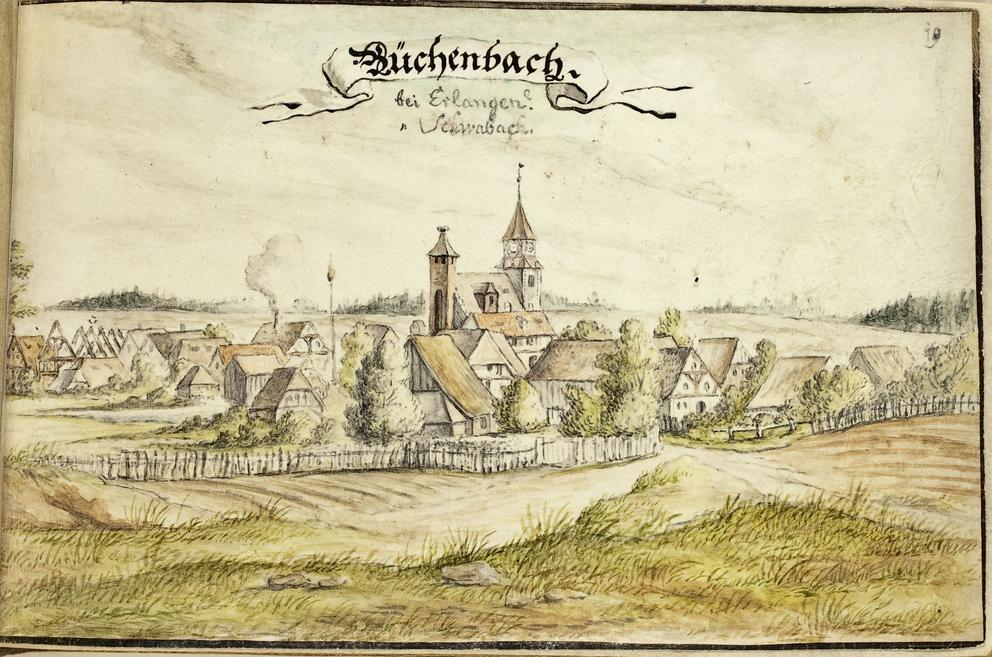 19
Büchenbach.
bei Erlangen?
" Schwabach.